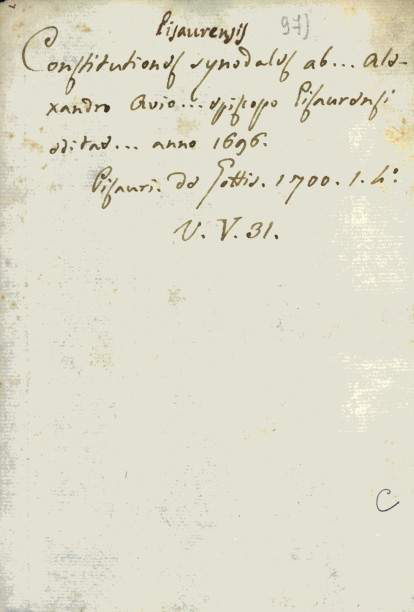 Pisaurensis 97)
Constitutiones synodales ab... Ale-
xandro Avio... episcopo Pisaurensi
editae... anno 1696.
Pisauri. de Gottis. 1700. 1. 4°
V. V. 31.
C